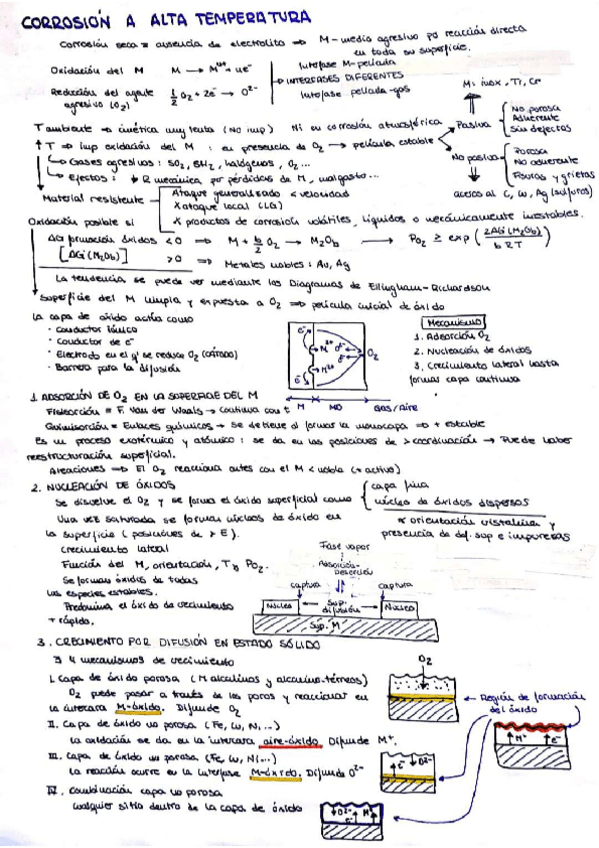 CORROSIÓN A ALTA TEMPERATURA
Corrosión seca = ausencia de electrolito ⇒ M - medio agresivo po reacción directa en toda su superficie.
Oxidación del M M → Mⁿ⁺ + ne⁻
Reducción del agente agresivo (O₂) ½ O₂ + 2e⁻ → O²⁻
Intefase M-pelicula
⇒ INTERFASES DIFERENTES
Intefase pelicula-gas
M: inox, Ti, Cr
T ambiente → cinética muy lenta (No imp) Ni en corrosión atmosférica
↑T ⇒ imp oxidación del M : en presencia de O₂ → película estable
Pasiva
No porosa
Adherente
Sin defectos
No pasiva
Porosa
No adherente
Fisuras y grietas
aceros al C, W, Ag (sulfuros)
Gases agresivos: SO₂, SH₂, halógenos, O₂...
Efectos: ↓ R mecánica por pérdidas de M
Material resistente
Ataque generalizado < velocidad
X ataque local (LG)
X productos de corrosión volátiles, líquidos o mecánicamente inestables.
Oxidación posible si
ΔG formación óxidos < 0 ⇒ M + b/2 O₂ → M₂Ob → Po₂ ≥ exp (2ΔG(M₂Ob) / b RT)
[ΔG(M₂Ob)] > 0 ⇒ Metales nobles: Au, Ag
La tendencia se puede ver mediante los Diagramas de Ellingham-Richardson
Superficie del M limpia y expuesta a O₂ ⇒ película inicial de óxido
La capa de óxido actúa como
· Conductor iónico
· Conductor de e⁻
· Electrodo en el q' se reduce O₂ (cátodo)
· Barrera para la difusión
e⁻ M²⁺ O²⁻ O₂
M MO GAS/Aire
Mecanismo
1. Adsorción O₂
2. Nucleación de óxidos
3. Crecimiento lateral hasta formar capa continua
1. ADSORCIÓN DE O₂ EN LA SUPERFICIE DEL M
Fisisorción = F. Van der Waals → continua con t
Quimisorción = Enlaces químicos → Se detiene al formar la monocapa ⇒ + estable
Es un proceso exotérmico y atómico: se da en las posiciones de > coordinación → Puede haber
reestructuración superficial.
Aleaciones ⇒ El O₂ reacciona antes con el M < noble (+ activo)
2. NUCLEACIÓN DE ÓXIDOS
Se disuelve el O₂ y se forma el óxido superficial como
capa fina
núcleo de óxidos dispersos
Una vez saturada se forman núcleos de óxido en
la superficie (posiciones de > E).
orientación cristalina y
presencia de def. sup e impurezas
Crecimiento lateral
Función del M, orientación, T y Po₂.
Se forman óxidos de todas
las especies estables.
Predomina el óxido de crecimiento
+ rápido.
Fase vapor
Adsorción-
Desorción
captura
captura
Núcleo
Sup. difusión
Núcleo
Sup. M
3. CRECIMIENTO POR DIFUSIÓN EN ESTADO SÓLIDO
∃ 4 mecanismos de crecimiento
I. Capa de óxido porosa (M alcalinos y alcalino-térreos)
O₂ puede pasar a través de los poros y reaccionar en
la intercara M-óxido. Difunde O₂
II. Capa de óxido no porosa (Fe, Cu, Ni,...)
La oxidación se da en la intercara aire-óxido. Difunde M⁺.
III. Capa de óxido no porosa (Fe, Co, Ni(...)
La reacción ocurre en la interfase M-óxido. Difunde O²⁻
IV. Combinación capa no porosa
Cualquier sitio dentro de la capa de óxido
O₂
Región de formación
del óxido
M⁺ e⁻
e⁻ O²⁻
O²⁻ e⁻ M⁺